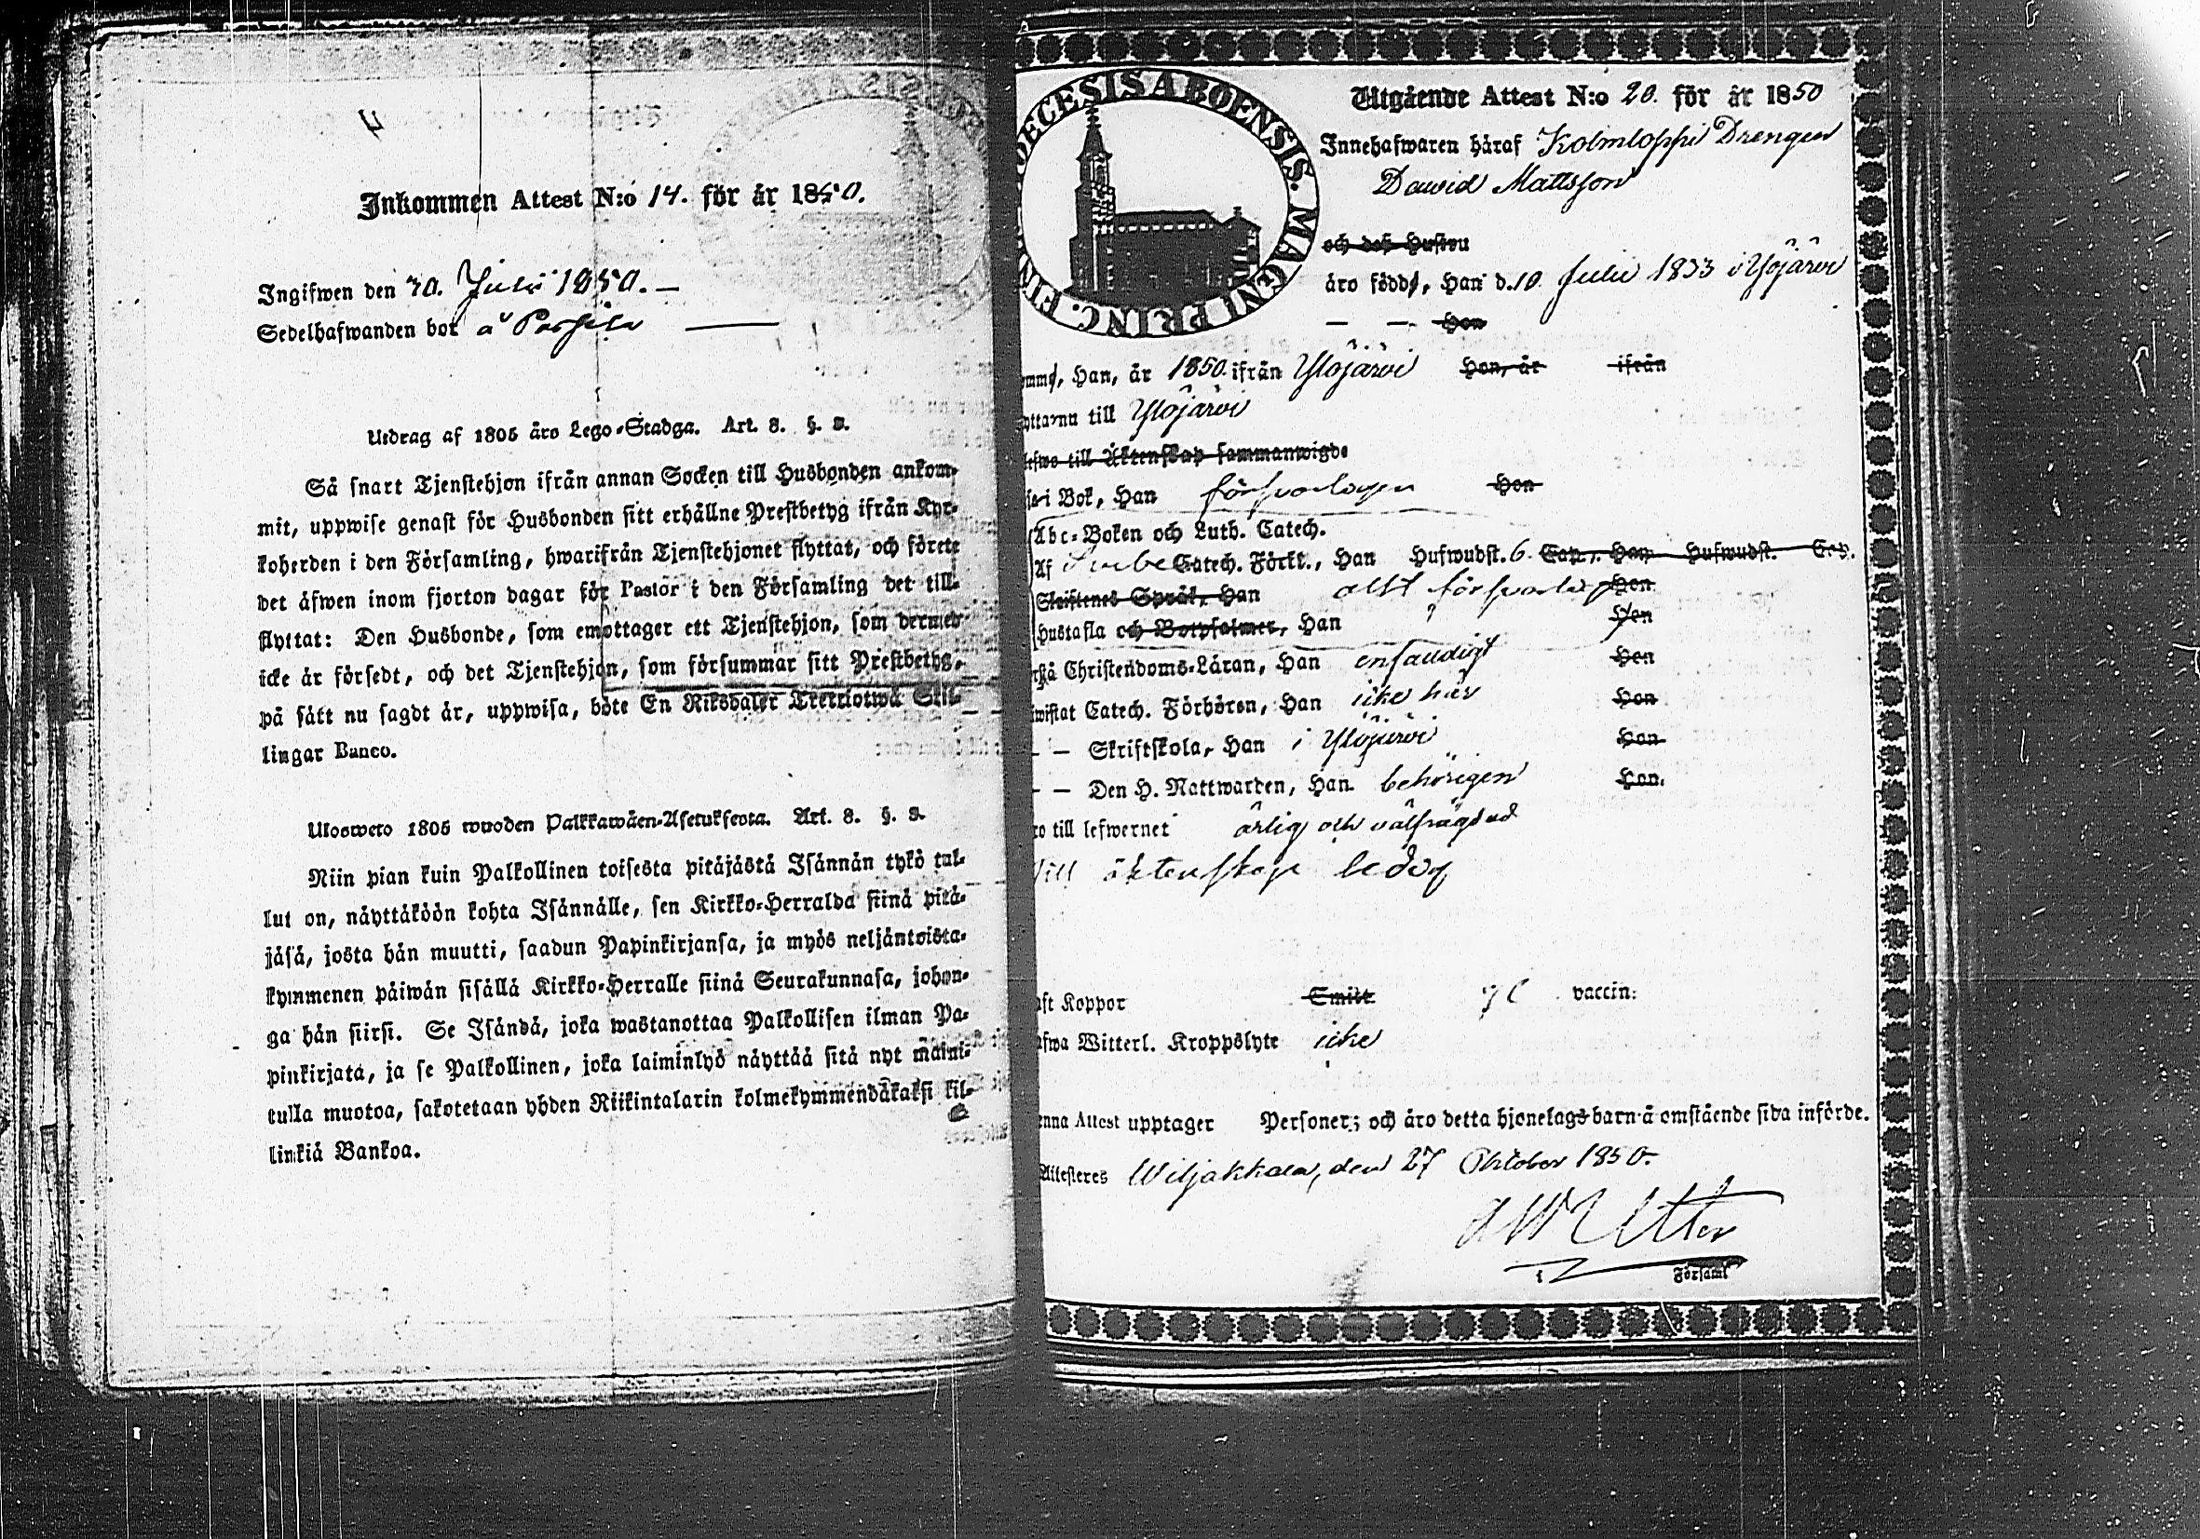 Inkommen Attest N:o 14. för år 1850.
Ingifwen den 30. Juli 1850. —
Sedelhafwanden bor å Parsila —
Utdrag af 1805 års Lego-Stadga. Art. 8. §. 8.
Så snart Tjenstehjon ifrån annan Socken till Husbonden ankom-
mit, uppwise genast för Husbonden sitt erhållne Prestbetyg ifrån Kyr-
koherden i den Församling, hwarifrån Tjenstehjonet flyttat, och förete
det äfwen inom fjorton dagar för Pastor i den Församling det till-
flyttat: Den Husbonde, som emottager ett Tjenstehjon, som dermed
icke är försedt, och det Tjenstehjon, som försummar sitt Prestbetyg,
på sätt nu sagdt är, uppwisa, böte En Riksdaler Trettiotwå Skil-
lingar Banco.
Ulosweto 1805 wuoden Palkkawäen-Asetuksesta. Art. 8. §. 8.
Niin pian kuin Palkollinen toisesta pitäjästä Isännän tykö tul-
lut on, näyttäköön kohta Isännälle, sen Kirkko-Herralda siinä pitä-
jäsä, josta hän muutti, saadun Papinkirjansa, ja myös neljäntoista-
kymmenen päiwän sisällä Kirkko-Herralle siinä Seurakunnasa, johon-
ga hän siirsi. Se Isändä, joka wastanottaa Palkollisen ilman Pa-
pinkirjata, ja se Palkollinen, joka laiminlyö näyttää sitä nyt maini-
tulla muotoa, sakotetaan yhden Riikintalarin kolmekymmendäkaksi kil-
linkiä Bankoa.
DIOECESIS ABOENSIS. MAGNI PRINC. FIN
Utgående Attest N:o 20. för år 1850
Innehafwaren häraf Kolmloppi Drengen
Dawid Mattsson
och dess Hustru
äro född, Han d. 10 Julii 1833 i Ylöjärvi
— — Hon
omm, Han, år 1850. ifrån Ylöjärvi Hon, år ifrån
yttarna till Ylöjärvi
lefwo till Äktenskap sammanwigde
i Bok, Han försvarligen Hon
Abc-Boken och Luth. Catech.
Af Svebe Catech. Förkl., Han Hufwudst. 6. Cap., Hon Hufwudst. Cap.
Skriftenes Språk, Han allt försvarlig Hon
Hustafla och Botpsalmer, Han Hon
rstå Christendoms-Läran, Han enfaldigt Hon
wistat Catech. Förhören, Han icke här Hon
— — Skriftskola, Han i Ylöjärvi Hon
— — Den H. Nattwarden, Han behörigen Hon.
ro till lefwernet ärlig och välfrägdad
Till äktenskap ledig
aft Koppor Smitt vaccin:
afwa Witterl. Kroppslyte icke
enna Attest upptager Personer; och äro detta hjonelags barn å omstående sida införde.
Attesteres Wiljakkala, den 27 Oktober 1850.
Utter
i Församl